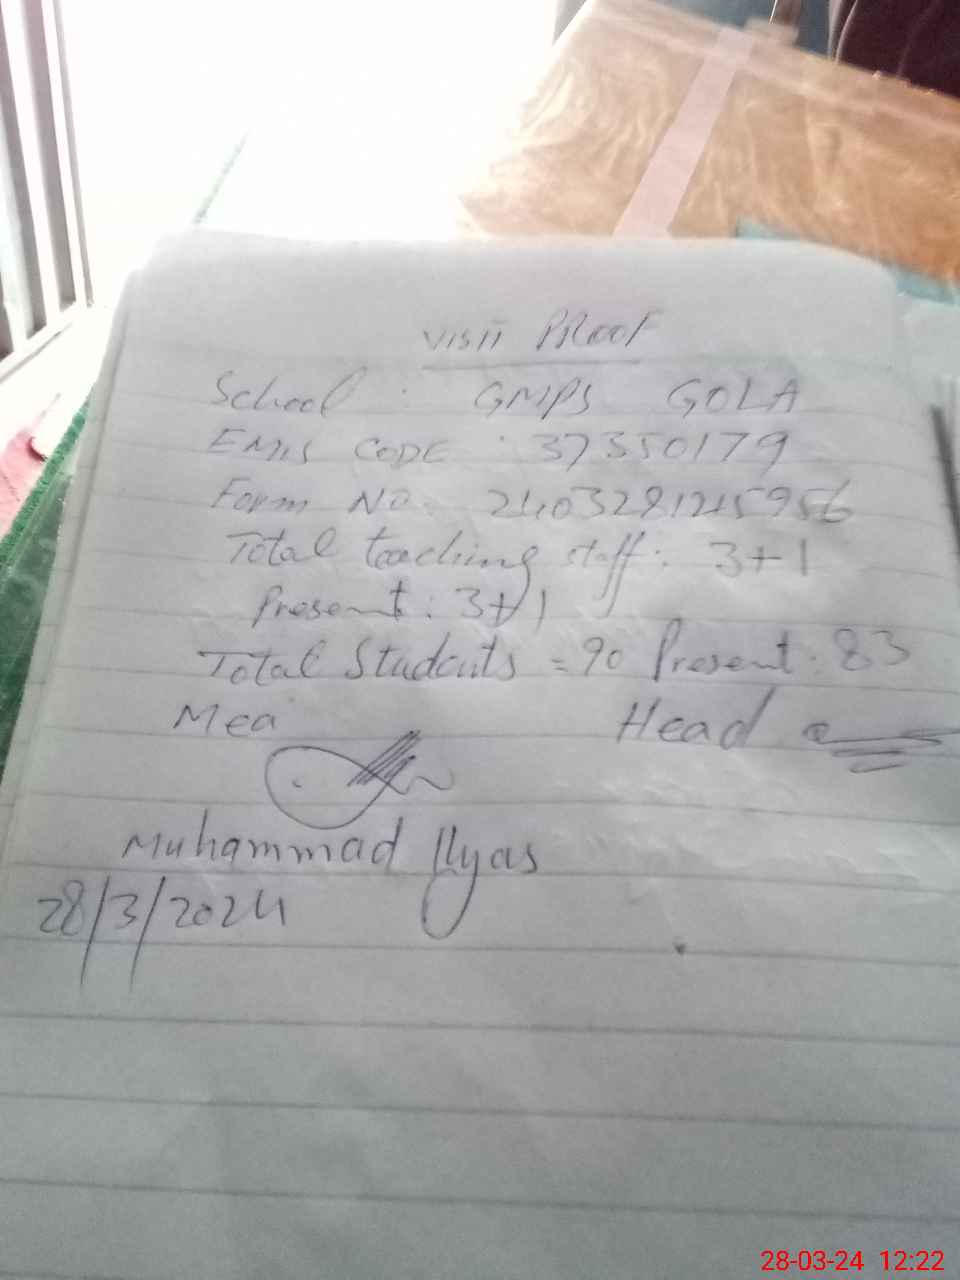 VISIT PROOF
School : GMPS GOLA
EMIS CODE : 37350179
Form No. 2403281215956
Total teaching staff : 3+1
Present : 3+1
Total Students = 90 Present : 83
Mea Head
Muhammad Ilyas
28/3/2024
28-03-24 12:22